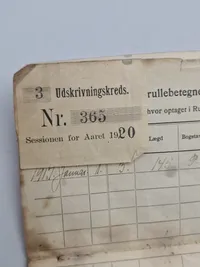 3 Udskrivningskreds.
Nr. 365
Sessionen for Aaret 1920
rullebetegne
hvor optaget i Ru
Lægd
Bogstav